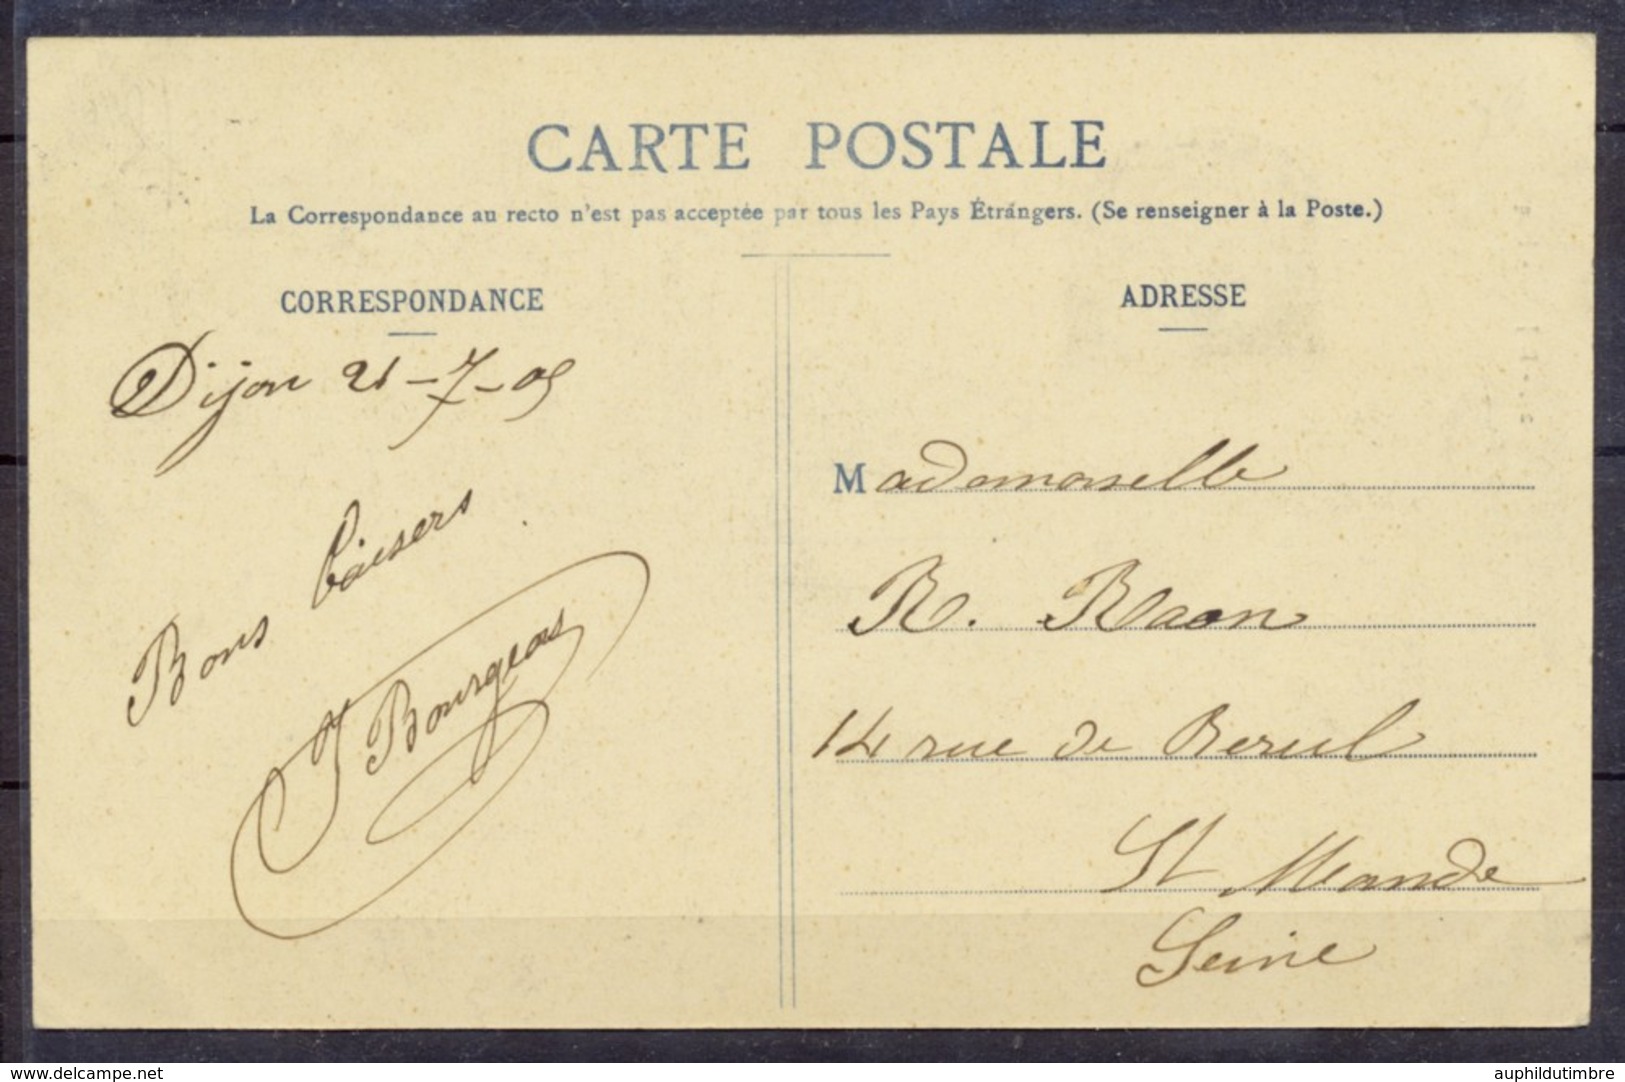 CARTE POSTALE
La Correspondance au recto n'est pas acceptée par tous les Pays Étrangers. (Se renseigner à la Poste.)
CORRESPONDANCE
Dijon 21-7-05
Bons baisers
J Bourgeois
ADRESSE
Mademoiselle
R. Raon
14 rue de Berul
St Mande
Seine
www.delcampe.net
auphildutimbre